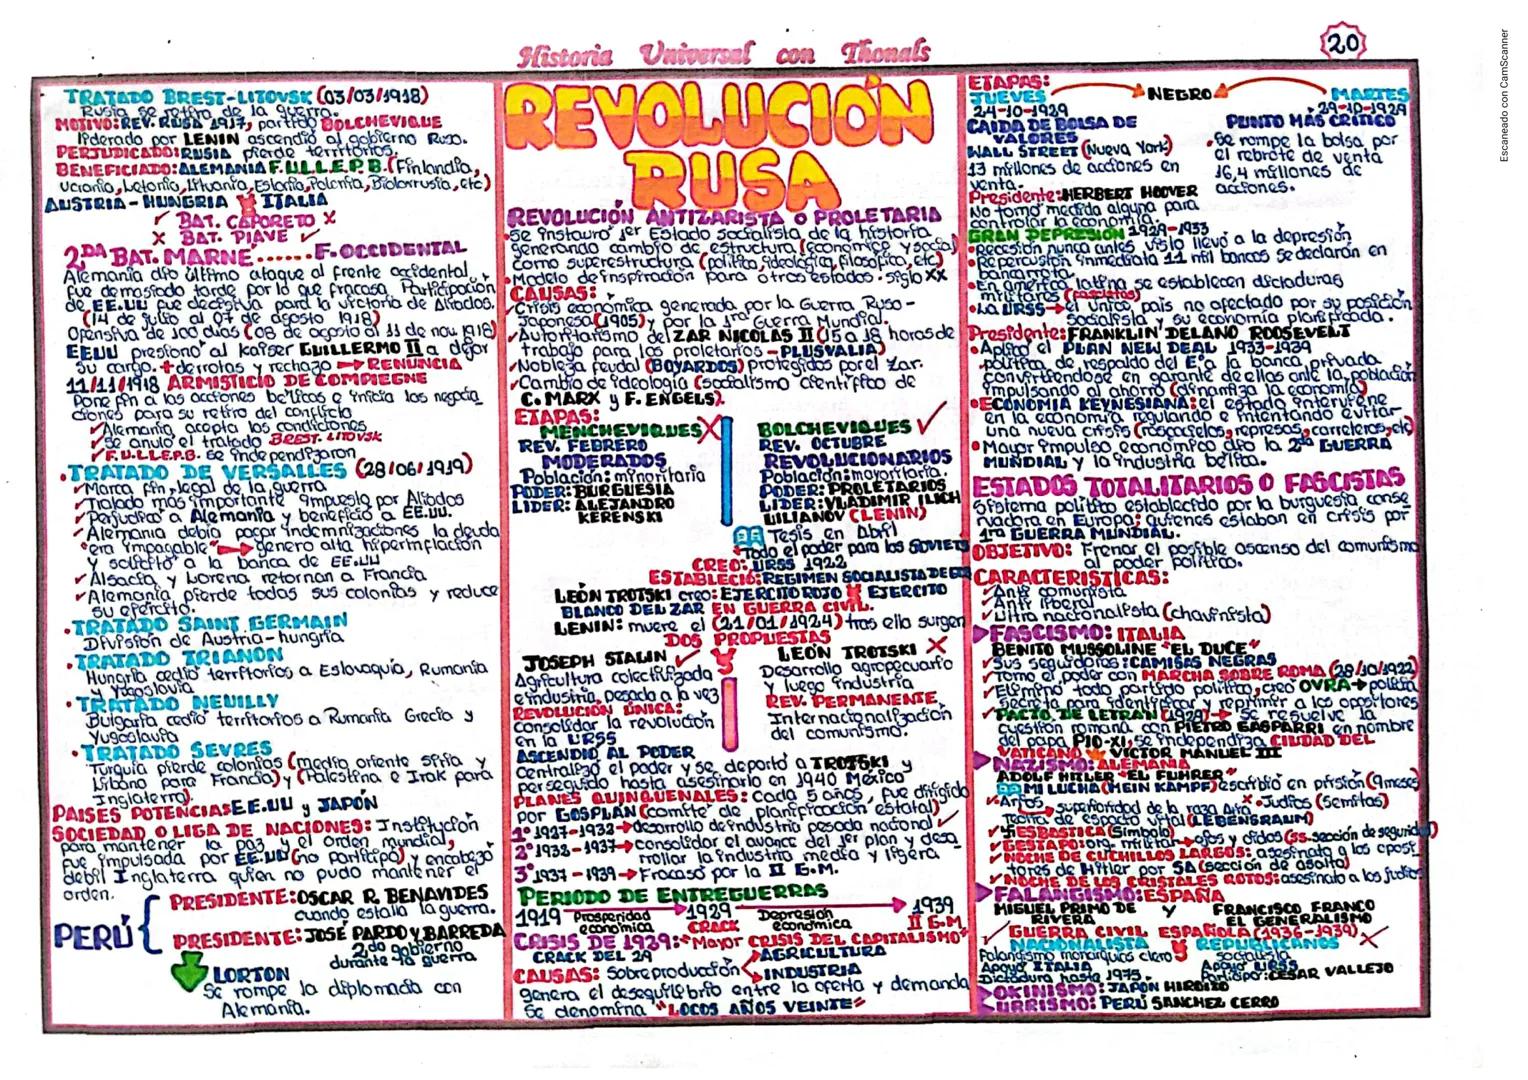 Historia Universal con Thonals
20
Escaneado con CamScanner
TRATADO BREST-LITOVSK (03/03/1918)
Rusia se retira de la guerra.
MOTIVO: REV. RUSA 1917, partido BOLCHEVIQUE
liderado por LENIN ascendió al gobierno Ruso.
PERJUDICADO: RUSIA pierde territorios.
BENEFICIADO: ALEMANIA F.U.L.L.E.P.B. (Finlandia,
Ucrania, Letonia, Lituania, Estonia, Polonia, Bielorrusia, etc)
AUSTRIA-HUNGRIA ITALIA
✓ BAT. CAPORETO X
X BAT. PIAVE ✓
2DA BAT. MARNE...... F. OCCIDENTAL
Alemania dio último ataque al frente occidental,
fue demasiado tarde por lo que fracasa. Participación
de EE.UU fue decisiva para la victoria de Aliados.
(14 de julio al 07 de agosto 1918)
Ofensiva de 100 días (08 de agosto al 11 de nov 1918)
EEUU presionó al kaiser GUILLERMO II a dejar
su cargo. + derrotas y rechazo → RENUNCIA
11/11/1918 ARMISTICIO DE COMPIEGNE
Pone fin a las acciones bélicas e inicia las negocia_
ciones para su retiro del conflicto
✓ Alemania acepta las condiciones
✓ Se anuló el tratado BREST-LITOVSK
✓ F.U.L.L.E.P.B. se independizaron
• TRATADO DE VERSALLES (28/06/1919)
✓ Marca fin legal de la guerra
✓ Tratado más importante impuesta por Aliados
✓ Perjudicó a Alemania y benefició a EE.UU.
✓ Alemania debía pagar indemnizaciones la deuda
"era impagable" → generó alta hiperinflación
y solicitó a la banca de EE.UU
✓ Alsacia y Lorena retornan a Francia
✓ Alemania pierde todas sus colonias y reduce
su ejército.
• TRATADO SAINT GERMAIN
División de Austria-hungría
• TRATADO TRIANON
Hungría cedió territorios a Eslovaquia, Rumania
y Yugoslavia
• TRATADO NEUILLY
Bulgaria cedió territorios a Rumania Grecia y
Yugoslavia
• TRATADO SEVRES
Turquía pierde colonias (medio oriente Siria y
Líbano para Francia) y (Palestina e Irak para
Inglaterra).
PAISES POTENCIAS EE.UU y JAPÓN
SOCIEDAD O LIGA DE NACIONES: Institución
para mantener la paz y el orden mundial,
fue impulsada por EE.UU (no participó) y encabezó
débil Inglaterra quien no pudo mantener el
orden.
PERÚ {
PRESIDENTE: OSCAR R. BENAVIDES
cuando estalla la guerra.
PRESIDENTE: JOSÉ PARDO Y BARREDA
2do gobierno
durante la guerra
LORTON
Se rompe la diplomacia con
Alemania.
REVOLUCIÓN
RUSA
REVOLUCIÓN ANTIZARISTA O PROLETARIA
• Se instauró 1er Estado socialista de la historia
generando cambio de estructura (económico y social)
como superestructura (política, ideológica, filosófica, etc)
• Modelo de inspiración para otros estados - siglo XX
CAUSAS:
✓ Crisis económica generada por la Guerra Ruso-
Japonesa (1905) y por la 1ra Guerra Mundial.
✓ Autoritarismo del ZAR NICOLAS II (15 a 18 horas de
trabajo para los proletarios - PLUSVALIA)
✓ Nobleza feudal (BOYARDOS) protegidos por el Zar.
✓ Cambio de ideología (socialismo científico de
C. MARX y F. ENGELS).
ETAPAS:
MENCHEVIQUES X
REV. FEBRERO
MODERADOS
Población: minoritaria
PODER: BURGUESIA
LIDER: ALEJANDRO
KERENSKI
BOLCHEVIQUES ✓
REV. OCTUBRE
REVOLUCIONARIOS
Población: mayoritaria.
PODER: PROLETARIOS
LIDER: VLADIMIR ILICH
ULIANOV (LENIN)
Tesis en Abril
"Todo el poder para los SOVIETS
CREÓ: URSS 1922
ESTABLECIÓ: REGIMEN SOCIALISTA DE E
LEÓN TROTSKI creó: EJERCITO ROJO EJERCITO
BLANCO DEL ZAR EN GUERRA CIVIL.
LENIN: muere el (21/01/1924) tras ella surgen
DOS PROPUESTAS
JOSEPH STALIN ✓
Agricultura colectivizada
e industria pesada a la vez
REVOLUCIÓN ÚNICA:
Consolidar la revolución
en la URSS
LEÓN TROTSKI X
Desarrollo agropecuario
y luego industria
REV. PERMANENTE
Internacionalización
del comunismo.
ASCENDIÓ AL PODER
Centralizó el poder y se deportó a TROTSKI y
perseguido hasta asesinarlo en 1940 México
PLANES QUINQUENALES: Cada 5 años, fue dirigido
por GOSPLÁN (comité de planificación estatal)
1° 1927-1932 → desarrollo de industria pesada nacional ✓
2° 1932-1937 → consolidar el avance del 1er plan y desa_
rrollar la industria media y ligera
3° 1937-1939 → Fracasó por la II G.M.
PERIODO DE ENTREGUERRAS
1919 → 1929 → 1939
Prosperidad económica CRACK Depresión económica II G.M
CRISIS DE 1929: "Mayor CRISIS DEL CAPITALISMO"
CRACK DEL 29
CAUSAS: Sobreproducción AGRICULTURA
INDUSTRIA
genera el desequilibrio entre la oferta y demanda
Se denomina "LOCOS AÑOS VEINTE"
ETAPAS:
JUEVES NEGRO MARTES
24-10-1929 29-10-1929
CAIDA DE BOLSA DE
VALORES
WALL STREET (Nueva York)
13 millones de acciones en
venta.
PUNTO MÁS CRÍTICO
• Se rompe la bolsa por
el rebrote de venta
16,4 millones de
acciones.
Presidente: HERBERT HOOVER
No tomó medida alguna para
controlar la economía.
GRAN DEPRESIÓN 1929-1933
• Recesión nunca antes visto llevó a la depresión
• Repercusión inmediata 11 mil bancos se declarán en
bancarrota.
• En américa latina se establecen dictaduras
militares (fascistas)
• La URSS → el único país no afectado por su posición
socialista y su economía planificada.
Presidente: FRANKLIN DELANO ROOSEVELT
• Aplicó el PLAN NEW DEAL 1933-1939
política de respaldo del E° a la banca privada
convirtiéndose en garante de ellas ante la población
impulsando al ahorro (dinamiza la economía)
• ECONOMIA KEYNESIANA: el estado interviene
en la economía regulando e intentando evitar
una nueva crisis (rascacielos, represas, carreteras, etc)
• Mayor impulso económico dio la 2da GUERRA
MUNDIAL y la industria bélica.
ESTADOS TOTALITARIOS O FASCISTAS
Sistema político establecido por la burguesía conse_
vadora en Europa; quienes estaban en crisis por
1ra GUERRA MUNDIAL.
OBJETIVO: Frenar el posible ascenso del comunismo
al poder político.
CARACTERISTICAS:
✓ Anti comunista
✓ Anti liberal
✓ Ultra nacionalista (chauvinista)
FASCISMO: ITALIA
BENITO MUSSOLINE "EL DUCE"
✓ Sus seguidores: CAMISAS NEGRAS
✓ Tomó el poder con MARCHA SOBRE ROMA (28/10/1922)
✓ Eliminó todo partido político, creó OVRA → policía
Secreta para identificar y reprimir a los opositores
✓ PACTO DE LETRAN (1929) → Se resuelve la
cuestión romana con PIETRO GASPARRI en nombre
del papa PIO-XI, se independiza CIUDAD DEL
VATICANO VICTOR MANUEL III
NAZISMO: ALEMANIA
ADOLF HITLER "EL FUHRER"
MI LUCHA (MEIN KAMPF) escribió en prisión (9 meses)
✓ Arios → superioridad de la raza Ario X Judíos (semitas)
Teoría de espacio vital (LEBENSRAUM)
✓ ESBASTICA (Símbolo)
✓ GESTAPO: org. militar → ojos y oídos (SS-sección de seguridad)
✓ NOCHE DE CUCHILLOS LARGOS: asesinato a los oposi_
tores de Hitler por SA (sección de asalto)
✓ NOCHE DE LOS CRISTALES ROTOS: asesinato a los judíos
FALANGISMO: ESPAÑA
MIGUEL PRIMO DE RIVERA Y FRANCISCO FRANCO
EL GENERALISMO
GUERRA CIVIL ESPAÑOLA (1936-1939)
✓ NACIONALISTA REPUBLICANOS X
Falangismo monarquías clero socialista
Apoyo ITALIA Apoyo URSS
Dictadura hasta 1975. Participó: CESAR VALLEJO
OKINISMO: JAPÓN HIROITO
URRISMO: PERÚ SANCHEZ CERRO